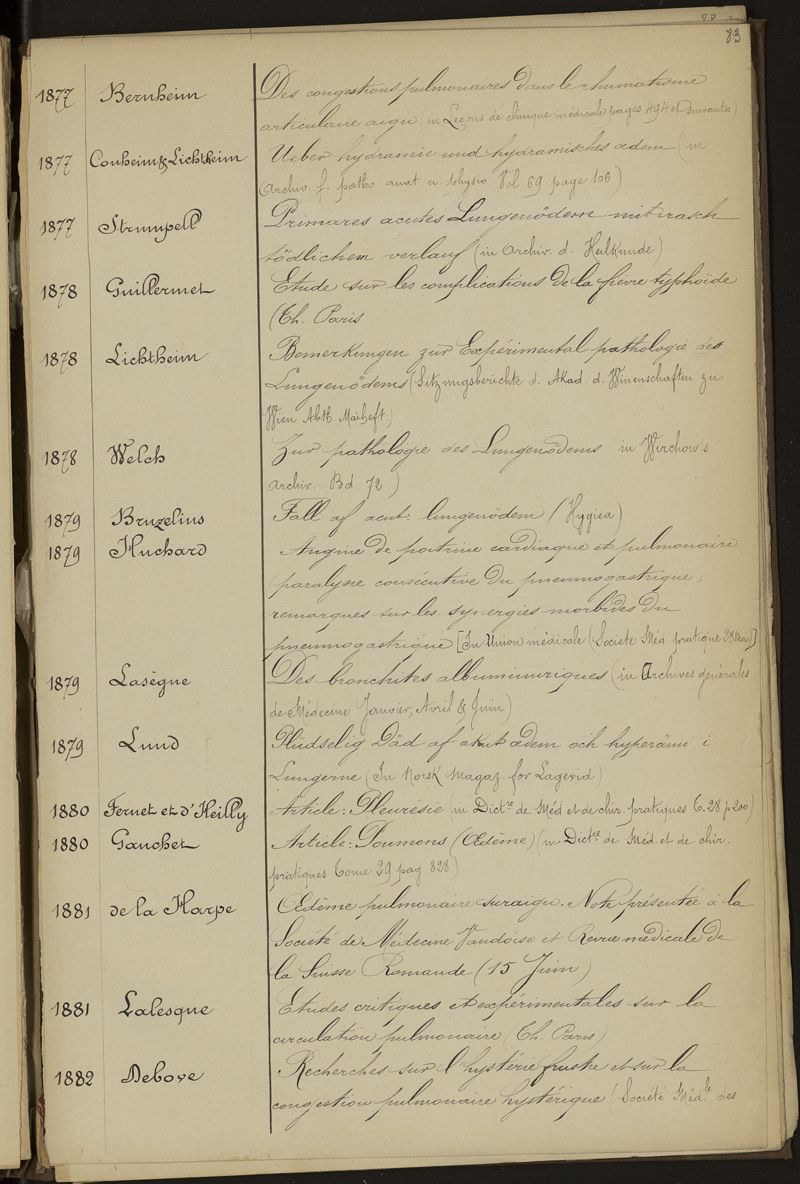 83
1877 Bernheim Des congestions pulmonaires dans le rhumatisme
articulaire aigu (in Leçons de clinique médicale pages 494 et suivantes)
1877 Conheim & Lichtheim Ueber hydramie und hydramisches œdem (in
Archiv. f. patho. anat. u. physio Vol 69 page 106)
1877 Strumpell Primares acutes Lungenödem mit rasch
tödlichem verlauf (in Archiv. d. Heilkunde)
1878 Guillermet Etude sur les complications de la fièvre typhoïde
(Th. Paris
1878 Lichtheim Bemerkungen zur Expérimental pathologie des
Lungenödems (Sitzungsberichte d. Akad. d. Winenschaften zu
Wien Abth Maiheft.)
1878 Welch Zur pathologie des Lungenödems in Wirchow's
archiv. Bd 72)
1879 Bruzelius Fall af acut. lungenödem (Hygiea)
1879 Huchard Angine de poitrine cardiaque et pulmonaire
paralysie consécutive du pneumogastrique,
remarques sur les synergies morbides du
pneumogastrique [In Union médicale (Societé Méd. pratique 28 Mars)]
1879 Lasègue Des bronchites albuminuriques (in Archives générales
de Médecine Janvier, Avril & Juin)
1879 Lund Plüdselig Däd af akut œdem och hyperämi i
Lungerne (In Norsk Magaz. for Lagevid)
1880 Fernet et d'Heilly Article: Pleuresie (in Dictre de Méd et de chir. pratiques T. 28 p 200)
1880 Gauchet Article: Poumons (Œdème) (in Dictre de Méd. et de chir.
pratiques tome 29 pag 828)
1881 de la Harpe Œdème pulmonaire suraigu. Note présentée à la
Société de Médecine Vaudoise et Revue médicale de
la Suisse Romande (15 Juin)
1881 Lalesque Etudes critiques et expérimentales sur la
circulation pulmonaire (Th. Paris)
1882 Debove Recherches sur l'hystérie fruste et sur la
congestion pulmonaire hystérique (Société Médle des